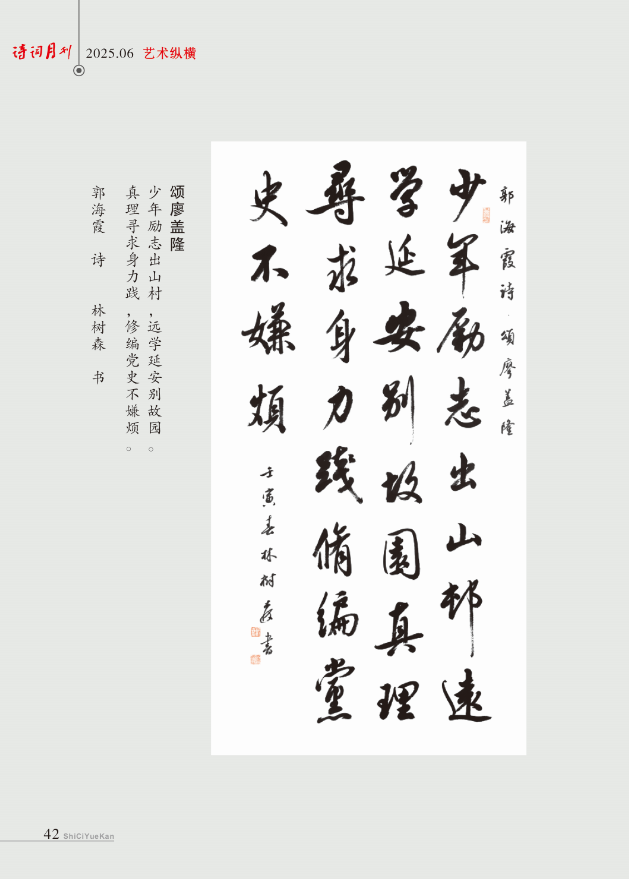 诗词月刊 2025.06 艺术纵横
郭海霞诗·颂廖盖隆
少年励志出山邨远
学延安别故園真理
尋求身力践脩编黨
史不嫌烦
壬寅春林树森书
颂廖盖隆
少年励志出山村，远学延安别故园。
真理寻求身力践，修编党史不嫌烦。
郭海霞 诗 林树森 书
42 ShiCiYueKan